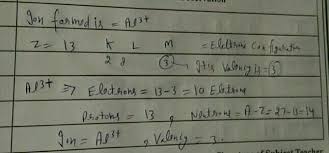 Ion formed is = Al3+
Z = 13 K L M = Electronic Configuration
2 8 ③ → It is Valency is = 3
Al3+ ⇒ Electrons = 13-3 = 10 Electrons
Protons = 13 , Neutrons = A-Z = 27-13 = 14
Ion = Al3+ , Valency = 3.
Subject Teacher